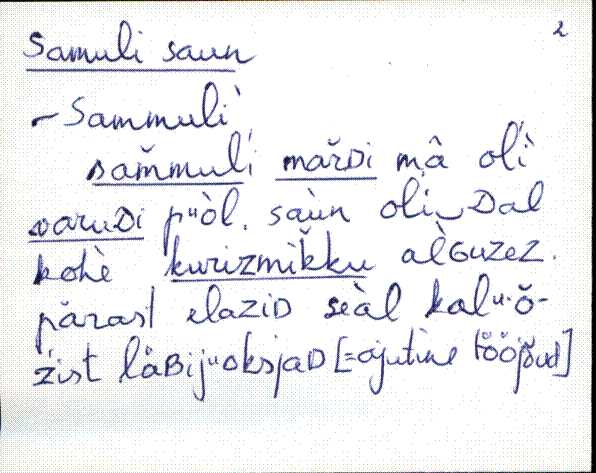 2
Samuli saun
– Sammuli`
sam̌muli mar̆Di mâ olì
varuDi pᵘòl. saùn oli‿Dal
kohè kurizmik̆ku alGuzez.
pǎrast elaziD seàl kalᵘ·ǒ-
žist låBijᵘoksjaD [=ajutine tööjõud]